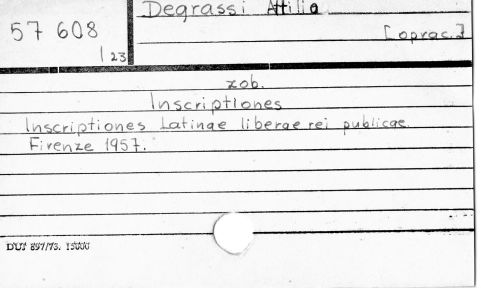 Degrassi Attilio
57 608
[oprac.]
| 23
zob.
Inscriptiones
Inscriptiones Latinae liberae rei publicae.
Firenze 1957.
DUJ 897/73. 15000